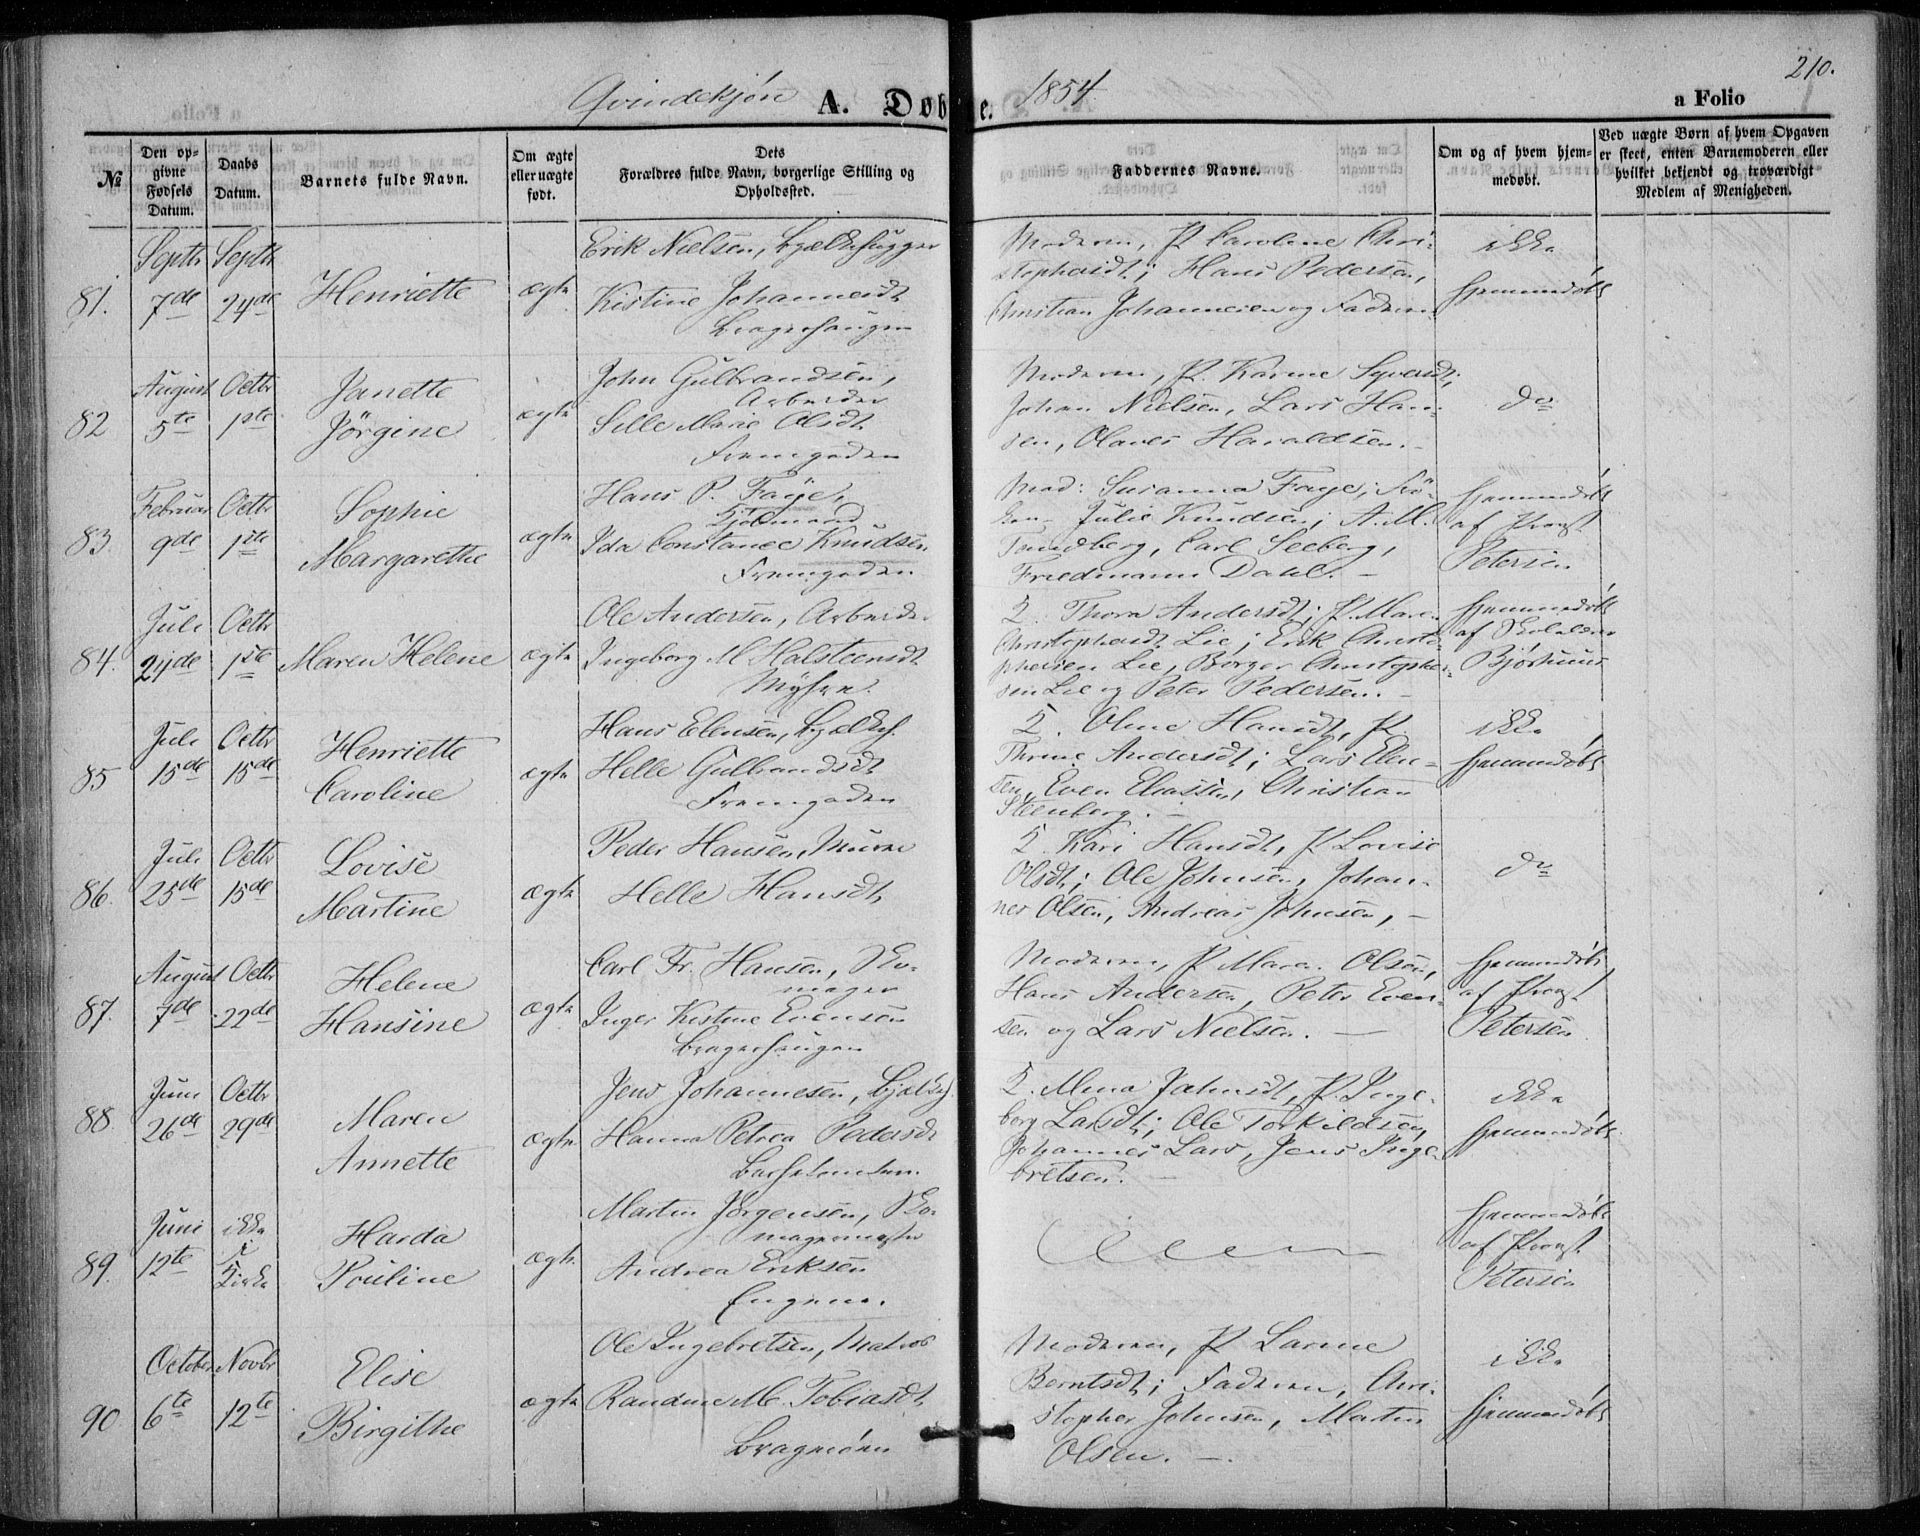 210.
Qvindekjøn A. Døbte. 1854
a Folio
№
Den opgivne Fødsels Datum.
Daabs Datum.
Barnets fulde Navn.
Om ægte eller uægte født.
Dets Forældres fulde Navn, borgerlige Stilling og Opholdssted.
Faddernes Navne.
Om og af hvem hjemmedøbt.
Ved uægte Børn af hvem Opgaven er skeet, enten Barnemoderen eller hvilket bekjendt og troværdigt Medlem af Menigheden.
81.
Septbr 7de
Septbr 24de
Henriette
ægte
Erik Nielsen, Bjælkehugger
Kistine Johannesdt
Moderen, P. Caroline Chri-
stophersdt; Hans Pedersen,
Christian Johannesen og Faderen
ikke
hjemmedøbt
82
August 5te
Octbr 1ste
Janette
Jörgine
ægte
John Gulbrandsen,
Arbeider
Sille Marie Olsdt
Fremgaden
Moderen, P. Karine Syversdt,
Johan Nielsen, Lars Han-
sen, Olaves Haraldsen.
do
83.
Februar 9de
Octbr 1ste
Sophie
Margarethe
ægte
Hans P. Faye,
Ida Constance Knudsen
Fremgaden
Mad: Susanna Faye; Frö-
ken Julie Knudsen; A. M.
Tandberg, Carl Seeberg,
Friedmann Dahl.
hjemmedøbt
af Provst
Petersen
84.
Juli 24de
Octbr 1ste
Maren Helene
ægte
Ole Andersen, Arbeider
Ingeborg M Halsteensdt
Myhre.
K. Thora Andersdt; P. Maren
Christophersdt Lie; Erik Christo-
phersen Lie, Börger Christophe-
sen Lie og Peter Pedersen.
hjemmedøbt
af Skolelærer
Bjørhuus
85
Juli 15de
Octbr 15de
Henriette
Caroline
ægte
Hans Elensen, Bjælkeh.
Helle Gulbrandsdt
Fremgaden
K. Oline Hansdt, P.
Thrine Andersdt; Lars Elen-
sen, Even Eliassen, Christian
Steenberg.
ikke
hjemmedøbt
86.
Juli 25de
Octbr 15de
Lovise
Martine
ægte
Peder Hansen, Murer
Helle Hansdt
K. Kari Hansdt, P. Lovise
Olsdt; Ole Johnsen, Johan-
nes Olsen, Andreas Johnsen,
do
87.
August 7de
Octbr 22de
Helene
Hansine
ægte
Carl Fr. Hansen, Sko-
mager
Inger Kistine Evensen
Moderen, P. Maren Olsen,
Hans Andersen, Peter Even-
sen og Lars Nielsen.
hjemmedøbt
af Provst
Petersen
88.
Juni 26de
Octbr 29de
Maren
Annette
ægte
Jens Johannesen, Bjælkeh.
Hanna Petrea Pedersdt
K. Mina Jahnsdt, P. Inge-
borg Larsdt; Ole Torkildsen,
Johannes Lars, Jens Inge-
bretsen.
ikke
hjemmedøbt
89.
Juni 12te
ikke i Kirke
Harda
Pouline
ægte
Martin Jørgensen, Sko-
magermester
Andrea Eriksen
Engene.
hjemmedøbt
af Provst
Petersen
90
October 6te
Novbr 12te
Elise
Birgithe
ægte
Ole Ingebretsen, Matros
Randine M. Tobiasdt
Bragernes
Moderen, P. Larine
Berntsdt; Faderen, Chri-
stopher Johnsen, Martin
Olsen.
ikke
hjemmedøbt